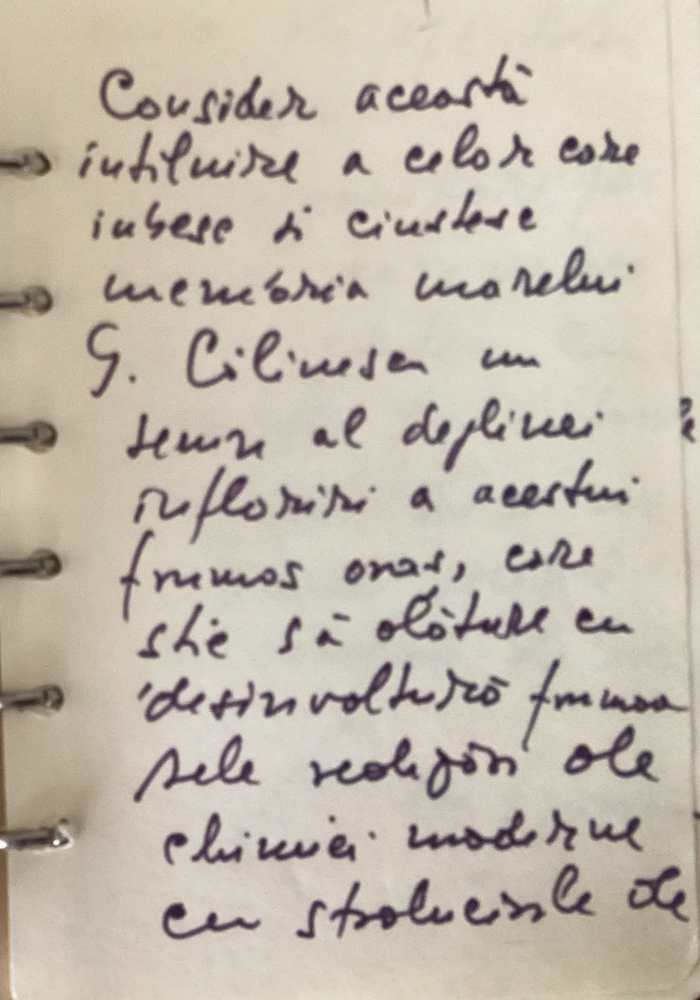 Consider această
intîlnire a celor care
iubesc și cinstesc
memoria marelui
G. Călinescu un
semn al deplinei
infloriri a acestui
frumos oraș, care
știe să alăture cu
desinvoltură frumoa
sele realizări ale
chimiei moderne
cu strălucirile ale